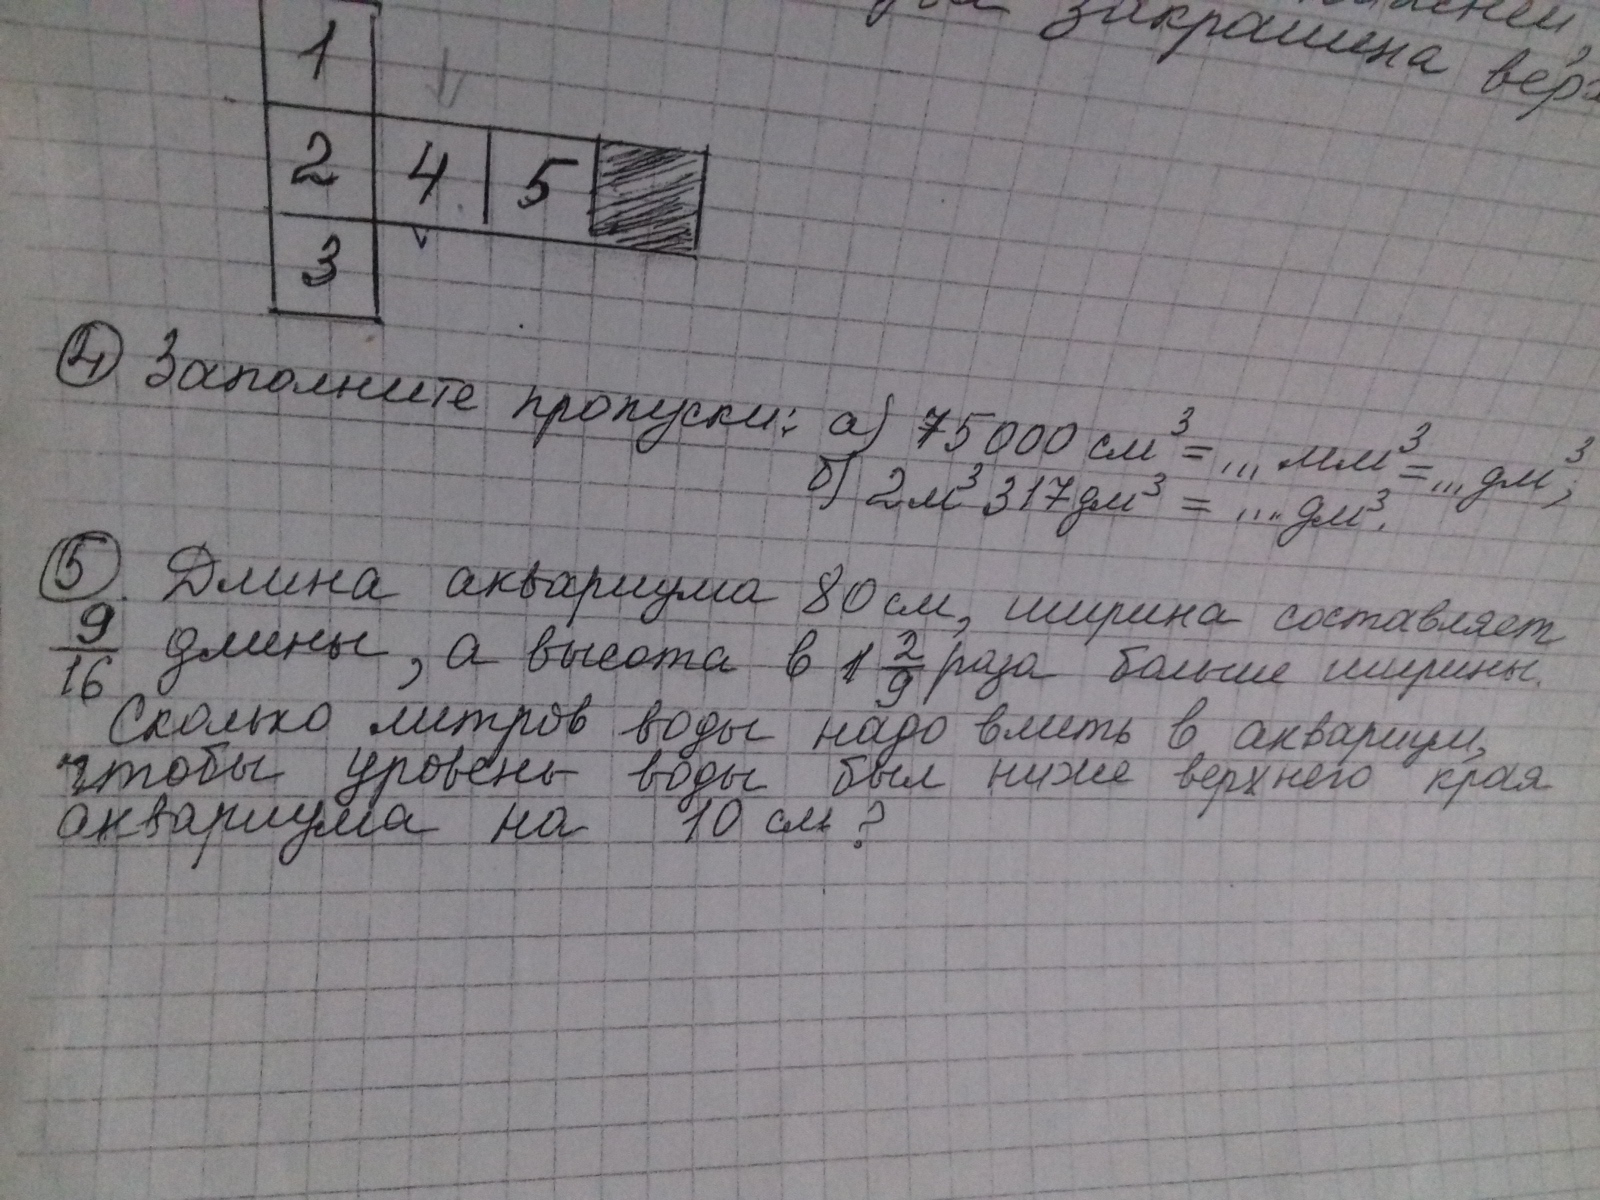 закрашена
1
2 4 5
3
④ Заполните пропуски: а) 75000 см³ = ... мм³ = ... дм³;
б) 2м³ 317дм³ = .... дм³.
⑤. Длина аквариума 80 см, ширина составляет
9/16 длины, а высота в 1 2/9 раза больше ширины.
Сколько литров воды надо влить в аквариум,
чтобы уровень воды был ниже верхнего края
аквариума на 10 см?